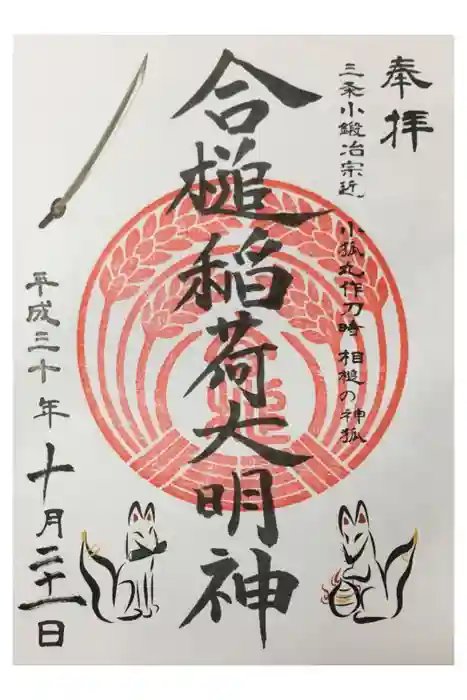 奉拝
三条小鍛冶宗近 小狐丸作刀時 相槌の神狐
合槌稲荷大明神
平成三十年十月二十一日